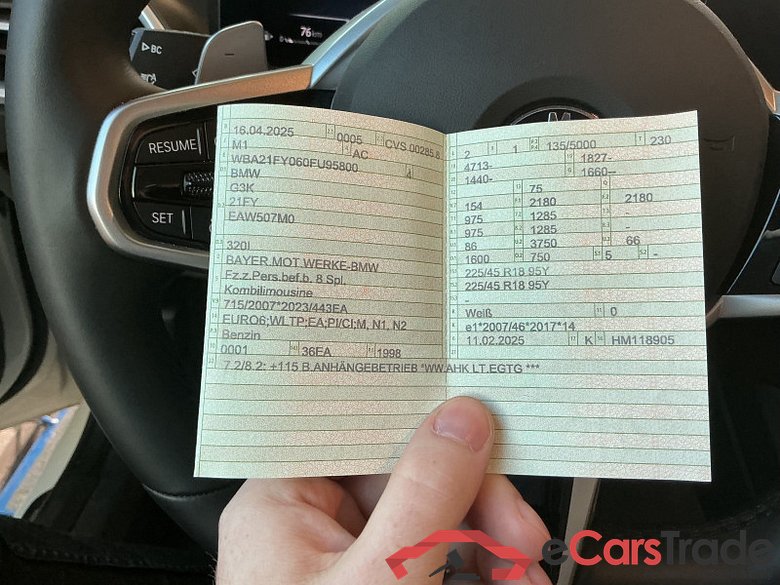 76 km
BC
RESUME
SET
M
16.04.2025 0005 CVS 00285 8
M1 AC
WBA21FY060FU95800 4
BMW
G3K
21FY
EAW507M0
320I
BAYER.MOT.WERKE-BMW
Fz.z.Pers.bef.b. 8 Spl.
Kombilimousine
715/2007*2023/443EA
EURO6;WLTP;EA;PI/CI;M, N1, N2
Benzin
0001 36EA 1998
7.2/8.2: +115 B.ANHÄNGEBETRIEB *WW.AHK LT.EGTG ***
2 1 135/5000 230
4713- 1827-
1440- 1660--
75
154 2180 2180
975 1285 -
975 1285 -
86 3750 66
1600 750 5 -
225/45 R18 95Y
225/45 R18 95Y
-
Weiß 0
e1*2007/46*2017*14
11.02.2025 K HM118905
eCarsTrade